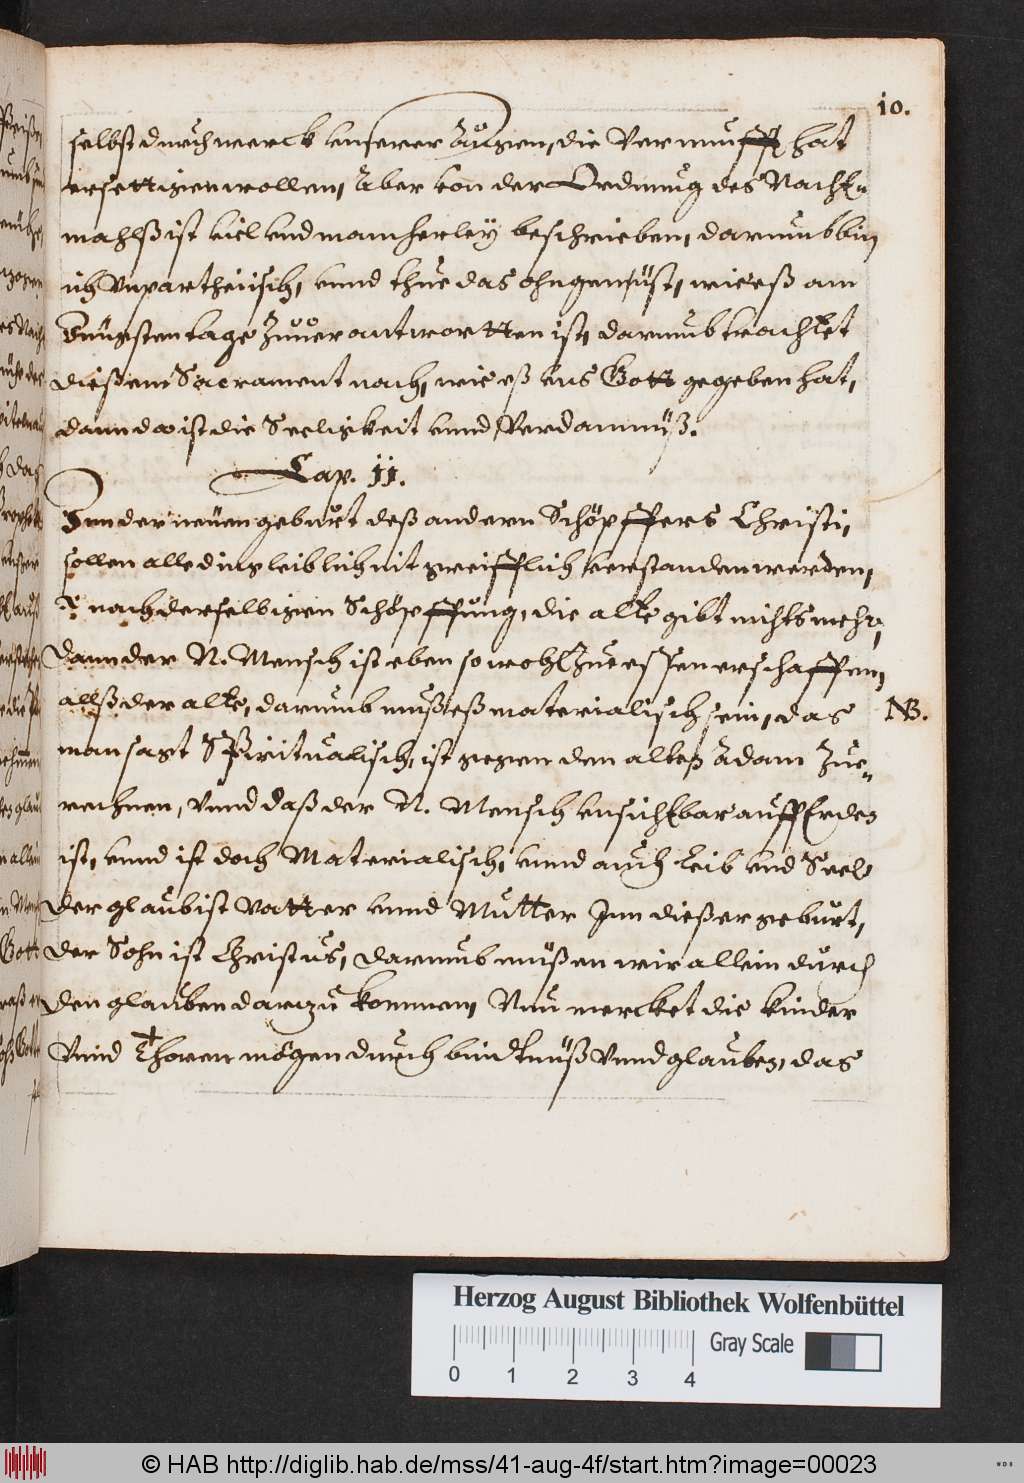 10.
selbst durch werck unserer Augen, die Vernunfft hat
ersettigen wollen, Aber von der Ordnung des Nacht„
mahlß ist viel und mancherley beschrieben, darumb bin
ich Unpartheiisch, unnd thue das ohngenüst, wie eß am
Jüngsten tage Zuverantwortten ist, darumb trachtet
dießem Sacrament nach, wie eß uns Gott gegeben hat,
dann da ist die Seeligkeit unnd Verdamnüß.
Cap. jj.
Inn der neüen geburt deß andern Schöpffers Christi,
sollen alle ding leiblich nit zweifflich verstanden werden,
nach derselbigen Schöpffung, die alte gibt nichts mehr,
Dann der N. Mensch ist eben so wohl Zu essen erschaffen,
allß der alte, darumb muß eß materialisch sein, das
NB.
man sagt Spiritualisch, ist gegen den alten Adam Zue„
rechnen, Unnd daß der N. Mensch unsichtbar auff Erden
ist, unnd ist doch Materialisch, unnd auch Leib und Seel,
der glaub ist Vatter unnd Mutter Inn dießer geburt,
der Sohn ist Christus, darumb müßen wir allein durch
den glauben darzu kommen, Nun mercket die kinder
Unnd Thoren mögen durch bündtnüß Unnd glauben, das
Herzog August Bibliothek Wolfenbüttel
Gray Scale
0 1 2 3 4
© HAB http://diglib.hab.de/mss/41-aug-4f/start.htm?image=00023